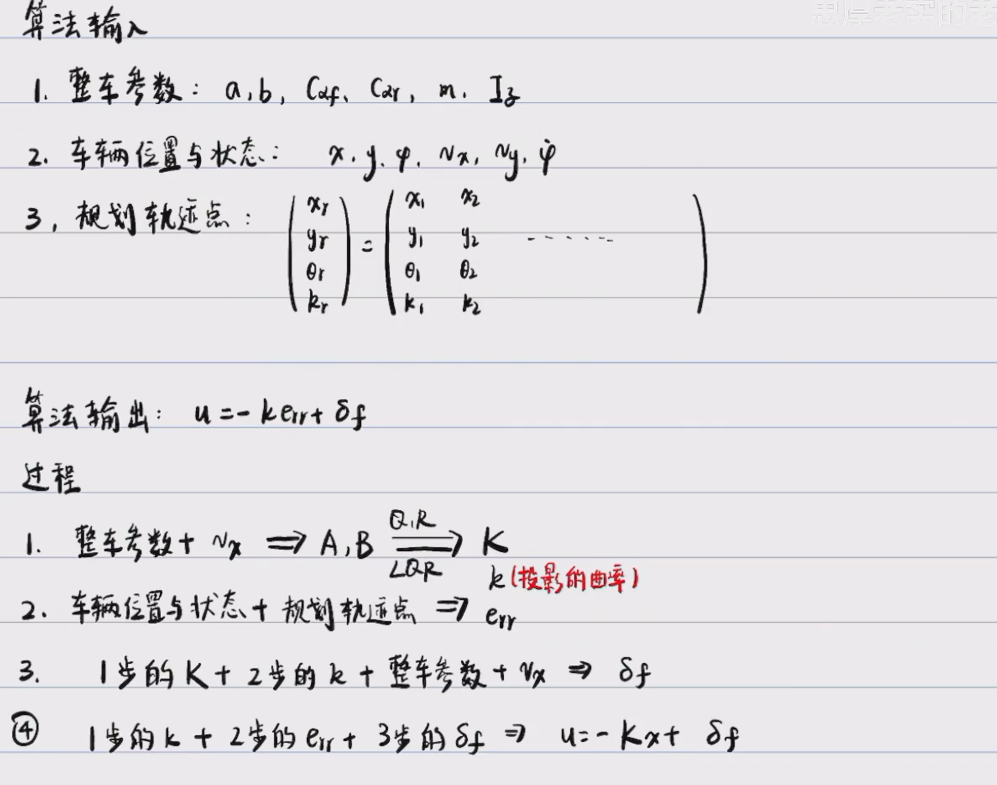 算法输入
1. 整车参数: a, b, Cαf, Cαr, m, Iz
2. 车辆位置与状态: x, y, φ, vx, vy, φ̇
3, 规划轨迹点: (xr yr θr kr) = (x1 x2
y1 y2 ······
θ1 θ2
k1 k2)
算法输出: u = -k err + δf
过程
1. 整车参数 + vx ⇒ A, B Q,R ⇒ LQR K
k (投影的曲率)
2. 车辆位置与状态 + 规划轨迹点 ⇒ err
3. 1步的K + 2步的k + 整车参数 + vx ⇒ δf
④ 1步的k + 2步的err + 3步的δf ⇒ u = -Kx + δf